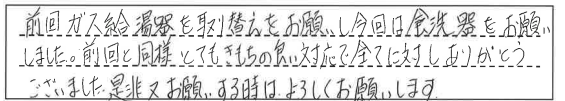 前回ガス給湯器を取り替えをお願いし今回は食洗器をお願い
しました。前回と同様とてもきもちの良い対応で全てに対しありがとう
ございました是非又お願いする時はよろしくお願いします